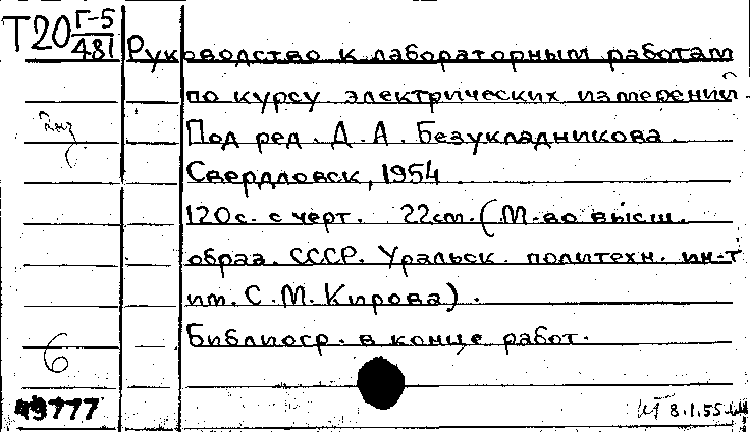 Т20 Г-5
481
Руководство к лабораторным работам
по курсу электрических измерений.
Под ред. Д. А. Безукладникова.
Свердловск, 1954
120с. с черт. 22см. (М-во высш.
образ. СССР. Уральск. политехн. ин-т
им. С. М. Кирова).
Библиогр. в конце работ.
6
49777
8.1.55